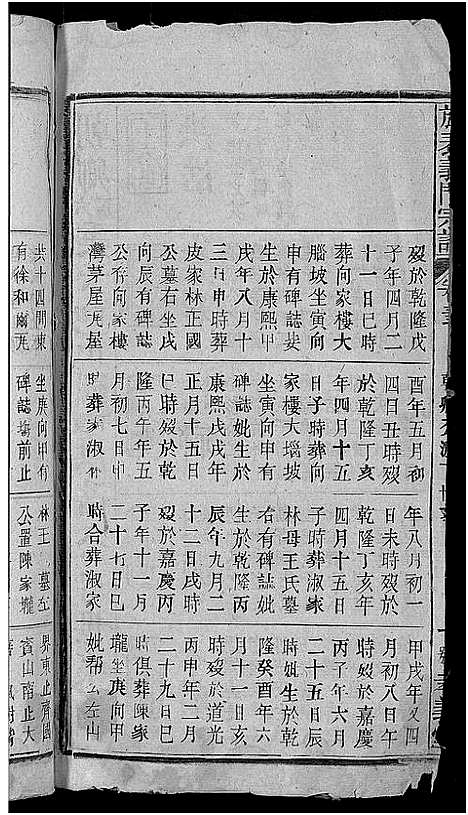 歿於乾隆戊
子年四月二
十一日巳時
葬向家樓大
腦坡坐寅向
申有碑誌妣
生於康熙甲
戌年八月十
三日申時葬
皮家林正國
公墓右坐戌
向辰有碑誌
公存向家大
灣茅屋瓦屋
共十四間東
有徐和爾瓦
酉年五月初
四日丑時歿
於乾隆丁亥
年四月十五
日子時葬向
家樓大塥坡
坐庚向申有
碑誌妣生於
康熙戊戌年
正月十五日
巳時歿於乾
隆丙午年五
月初七日申
時葬家淑林
坐庚向申有
碑誌塲前止
年八月初一
日未時歿於
乾隆丁亥年
四月十五日
子時葬淑家
林母王氏墓
右有碑誌妣
生於乾隆丙
辰年九月二
十二日戌時
歿於嘉慶丙
子年十一月
二十七日巳
時合葬淑家
林王 墓左
公置陳家壠
甲戌年又四
月初八日午
時歿於嘉慶
丙子年六月
二十五日辰
時妣生於乾
隆癸酉年六
月十一日亥
時歿於道光
丙申年二月
二十九日巳
時俱葬陳家
壠坐庚向甲
妣幫 左山
界東止齊國
賓山南止大